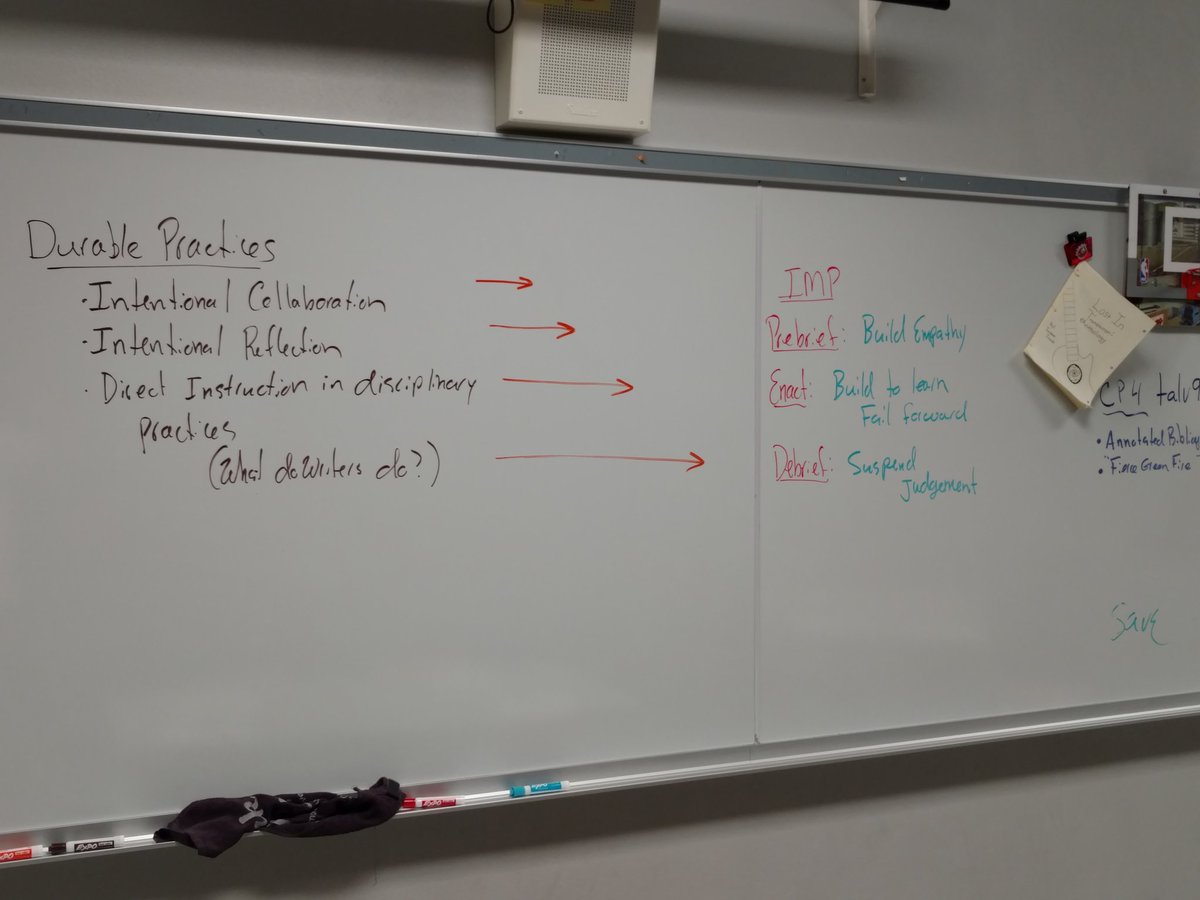 Durable Practices
· Intentional Collaboration
· Intentional Reflection
· Direct Instruction in disciplinary
practices
(What do Writers do?)
IMP
Prebrief: Build Empathy
Enact: Build to learn
Fail forward
Debrief: Suspend
Judgement
Lost In
CP4
• Annotated
• "Fierce Green Fire"
Save
EXPO
EXPO
EXPO
EXPO